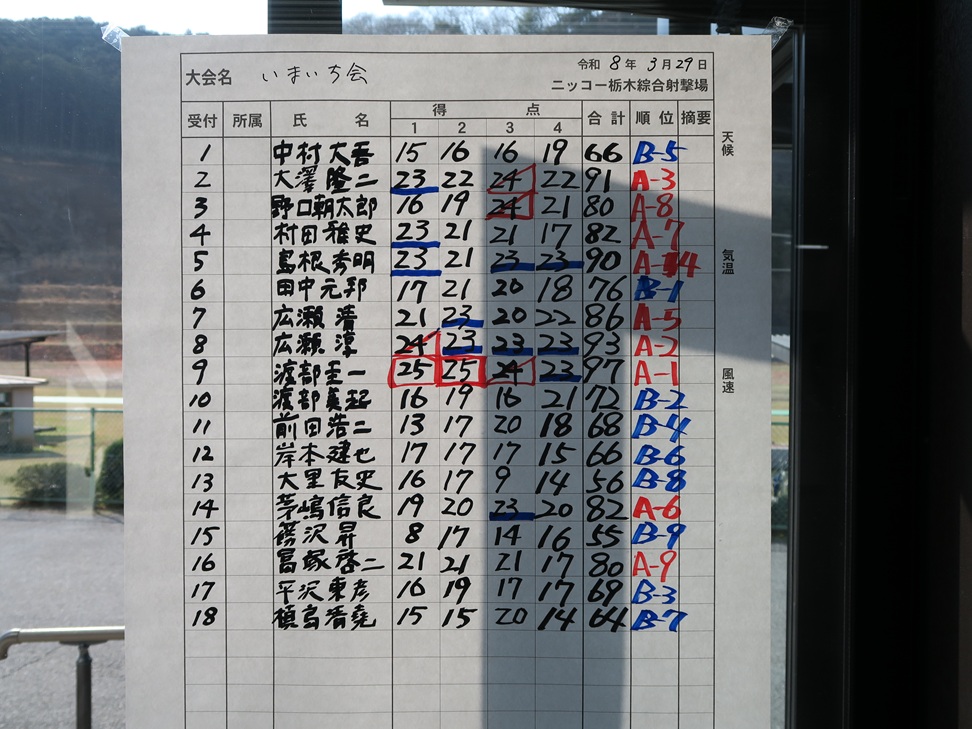 令和 8 年 3 月 29 日
大会名 いまいち会
ニッコー栃木綜合射撃場
受付 所属 氏 名 得 点 合計 順位 摘要
1 2 3 4
天候
1 中村大吾 15 16 16 19 66 B-5
2 大澤隆二 23 22 24 22 91 A-3
3 野口朝太郎 16 19 24 21 80 A-8
4 村田雅史 23 21 21 17 82 A-7
5 島根秀明 23 21 23 23 90 A-4
気温
6 田中元邦 17 21 20 18 76 B-1
7 広瀬清 21 23 20 22 86 A-5
8 広瀬淳 24 23 23 23 93 A-2
9 渡部圭一 25 25 24 23 97 A-1
風速
10 渡部眞起 16 19 16 21 72 B-2
11 前田浩二 13 17 20 18 68 B-4
12 岸本建也 17 17 17 15 66 B-6
13 大里友史 16 17 9 14 56 B-8
14 茅嶋信良 19 20 23 20 82 A-6
15 藤沢昇 8 17 14 16 55 B-9
16 冨塚啓二 21 21 21 17 80 A-9
17 平沢東彦 16 19 17 17 69 B-3
18 槙島清堯 15 15 20 14 64 B-7